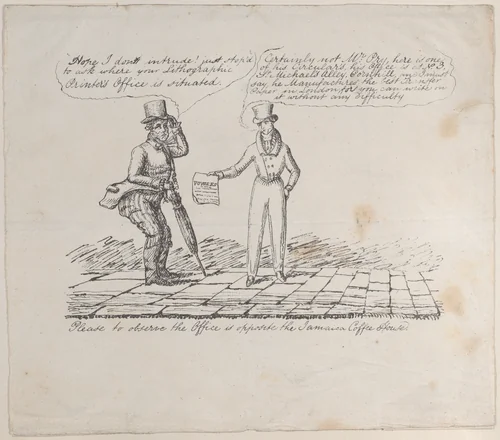 "Hope I don't intrude! just step'd
to ask where your Lithographic
Printer's Office is situated.
Certainly not Mr. Pry, here is one
of his Circulars, his Office is at No. 3
St. Michael's Alley, Cornhill, and I must
say he Manufactures the best Transfer
Paper in London for you can write on
it without any difficulty
Please to observe the Office is opposite the Jamaica Coffee House.